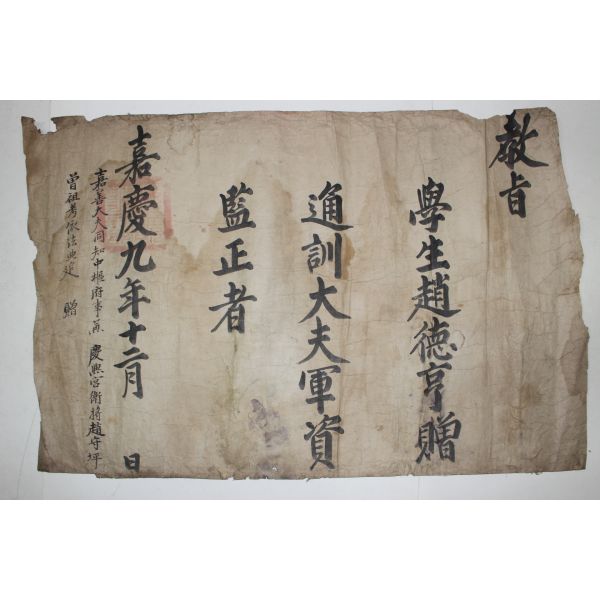 教旨
學生趙德亨贈
通訓大夫軍資
監正者
嘉慶九年十二月 日
嘉善大夫同知中樞府事兼 慶熙宮衛將趙守坪
曾祖考依法典追 贈